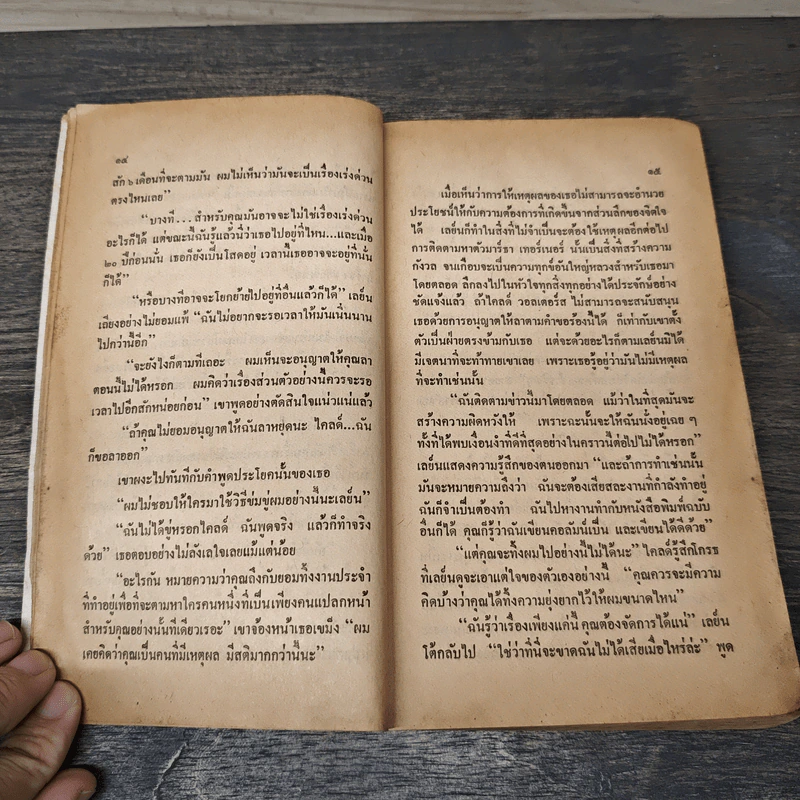 ๑๔
สัก ๖ เดือนที่จะตามมัน ผมไม่เห็นว่ามันจะเป็นเรื่องเร่งด่วน
ตรงไหนเลย”
“บางที...สำหรับคุณมันอาจจะไม่ใช่เรื่องเร่งด่วน
อะไรก็ได้ แต่ขณะนี้ฉันรู้แล้วนี่ว่าเธอไปอยู่ที่ไหน...และเมื่อ
๒๐ ปีก่อนนั่น เธอก็ยังเป็นโสดอยู่ เวลานี้เธออาจจะอยู่ที่นั่น
ก็ได้”
“หรือบางทีอาจจะโยกย้ายไปอยู่ที่อื่นแล้วก็ได้” เลย์น
เลี่ยงอย่างไม่ยอมแพ้ “ฉันไม่อยากจะรอเวลาให้มันเนิ่นนาน
ไปกว่านี้อีก”
“จะยังไงก็ตามทีเถอะ ผมเห็นจะอนุญาตให้คุณลา
ตอนนี้ไม่ได้หรอก ผมคิดว่าเรื่องส่วนตัวอย่างนี้ควรจะรอ
เวลาไปอีกสักหน่อยก่อน” เขาพูดอย่างตัดสินใจแน่วแน่แล้ว
“ถ้าคุณไม่ยอมอนุญาตให้ฉันลาหยุดนะ ไคลด์...ฉัน
ก็ขอลาออก”
เขาผงะไปทันทีกับคำพูดประโยคนั้นของเธอ
“ผมไม่ชอบให้ใครมาใช้วิธีข่มขู่ผมอย่างนี้นะเลย์น”
“ฉันไม่ได้ขู่หรอกไคลด์ ฉันพูดจริง แล้วก็ทำจริง
ด้วย” เธอตอบอย่างไม่ลังเลใจเลยแม้แต่น้อย
“อะไรกัน หมายความว่าคุณถึงกับยอมทิ้งงานประจำ
ที่ทำอยู่เพื่อที่จะตามหาใครคนหนึ่งที่เป็นเพียงคนแปลกหน้า
สำหรับคุณอย่างนั้นทีเดียวเรอะ” เขาจ้องหน้าเธอเขม็ง “ผม
เคยคิดว่าคุณเป็นคนที่มีเหตุผล มีสติมากกว่านี้นะ”
๑๕
เมื่อเห็นว่าการให้เหตุผลของเธอไม่สามารถจะอำนวย
ประโยชน์ให้กับความต้องการที่เกิดขึ้นจากส่วนลึกของจิตใจ
ได้ เลย์นก็ทำในสิ่งที่ไม่จำเป็นจะต้องใช้เหตุผลอีกต่อไป
การติดตามหาตัวมาร์ธา เทอร์เนอร์ นั้นเป็นสิ่งที่สร้างความ
กังวล จนเกือบจะเป็นความทุกข์อันใหญ่หลวงสำหรับเธอมา
โดยตลอด ลึกลงไปในหัวใจทุกสิ่งทุกอย่างได้ประจักษ์อย่าง
ชัดแจ้งแล้ว ถ้าไคลด์ วอลเดอร์ส ไม่สามารถจะสนับสนุน
เธอด้วยการอนุญาตให้ลาตามคำขอร้องนี้ได้ ก็เท่ากับเขาตั้ง
ตัวเป็นฝ่ายตรงข้ามกับเธอ แต่จะด้วยอะไรก็ตามเลย์นมิได้
มีเจตนาที่จะท้าทายเขาเลย เพราะเธอรู้อยู่ว่ามันไม่มีเหตุผล
ที่จะทำเช่นนั้น
“ฉันติดตามข่าวนี้มาโดยตลอด แม้ว่าในที่สุดมันจะ
สร้างความผิดหวังให้ เพราะฉะนั้นจะให้ฉันนั่งอยู่เฉย ๆ
ทั้งที่ได้พบเงื่อนงำที่ดีที่สุดอย่างในคราวนี้ต่อไปไม่ได้หรอก”
เลย์นแสดงความรู้สึกของตนออกมา “และถ้าการทำเช่นนั้น
มันจะหมายความถึงว่า ฉันจะต้องเสียสละงานที่กำลังทำอยู่
ฉันก็จำเป็นต้องทำ ฉันไปหางานทำกับหนังสือพิมพ์ฉบับ
อื่นก็ได้ คุณก็รู้ว่าฉันเขียนคอลัมน์เป็น และเขียนได้ดีด้วย”
“แต่คุณจะทิ้งผมไปอย่างนี้ไม่ได้นะ” ไคลด์รู้สึกโกรธ
ที่เลย์นดูจะเอาแต่ใจของตัวเองอย่างนี้ “คุณควรจะมีความ
คิดบ้างว่าคุณได้ทิ้งความยุ่งยากไว้ให้ผมขนาดไหน”
“ฉันรู้ว่าเรื่องเพียงแค่นี้ คุณต้องจัดการได้แน่” เลย์น
โต้กลับไป “ใช่ว่าที่นี่จะขาดฉันไม่ได้เสียเมื่อไหร่ล่ะ” พูด